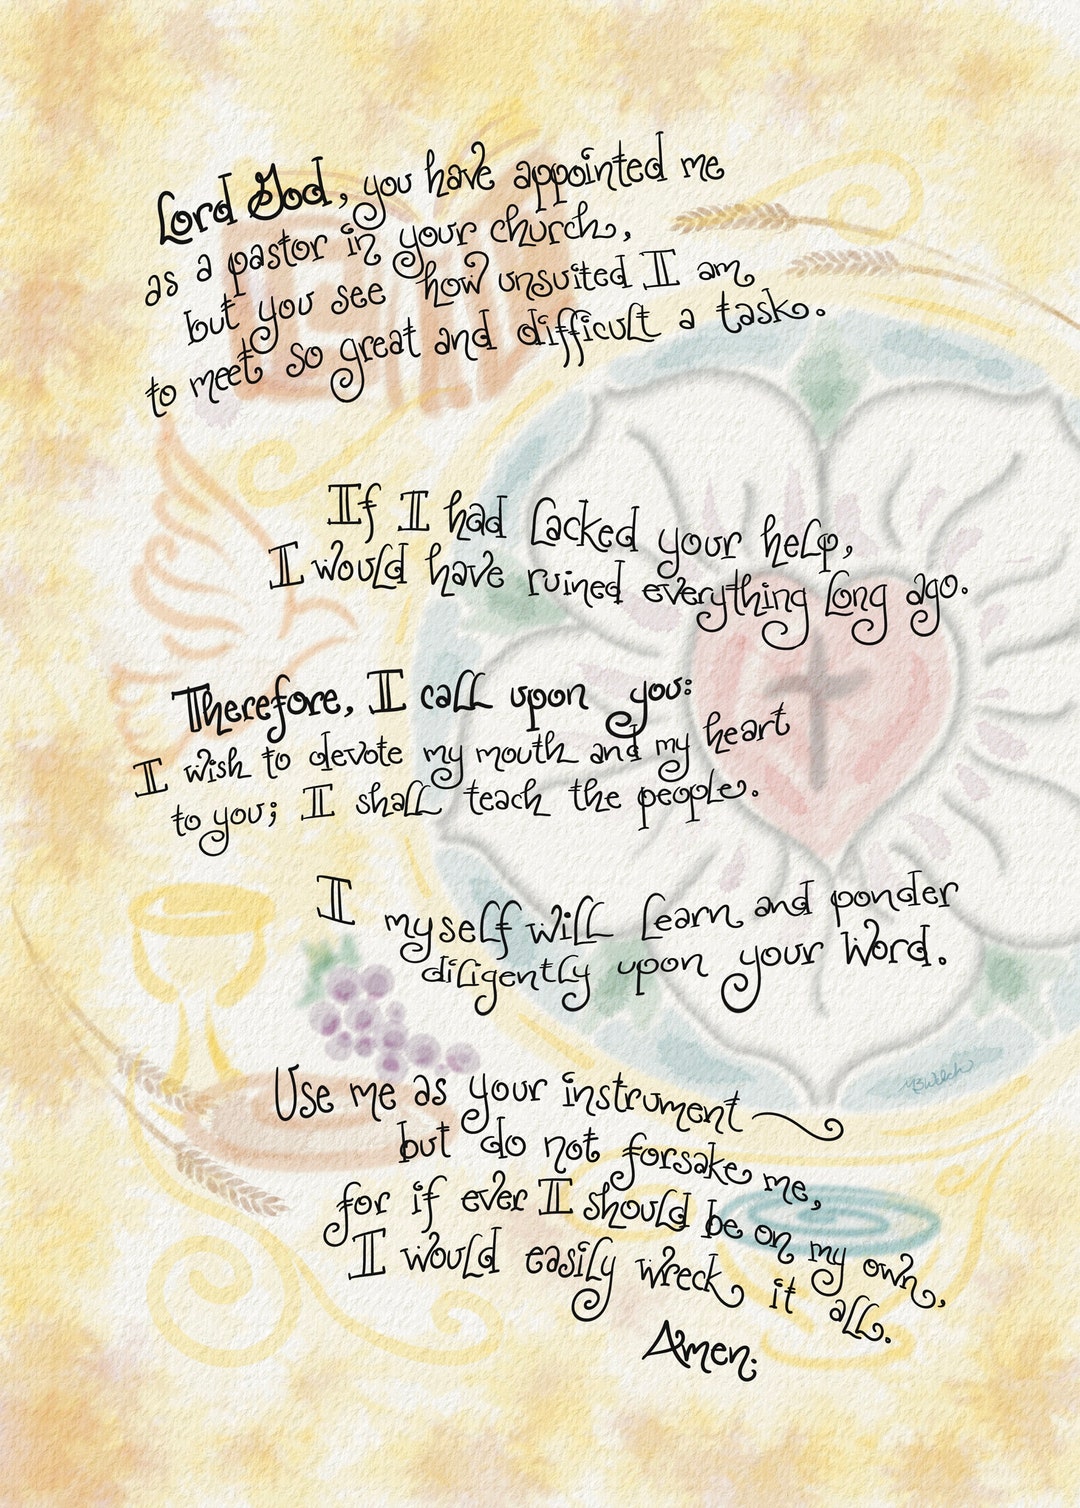 Lord God, you have appointed me
as a pastor in your church,
but you see how unsuited I am
to meet so great and difficult a task.
If I had lacked your help,
I would have ruined everything long ago.
Therefore, I call upon you:
I wish to devote my mouth and my heart
to you; I shall teach the people.
I myself will learn and ponder
diligently upon your Word.
Use me as your instrument
but do not forsake me,
for if ever I should be on my own,
I would easily wreck it all.
Amen.